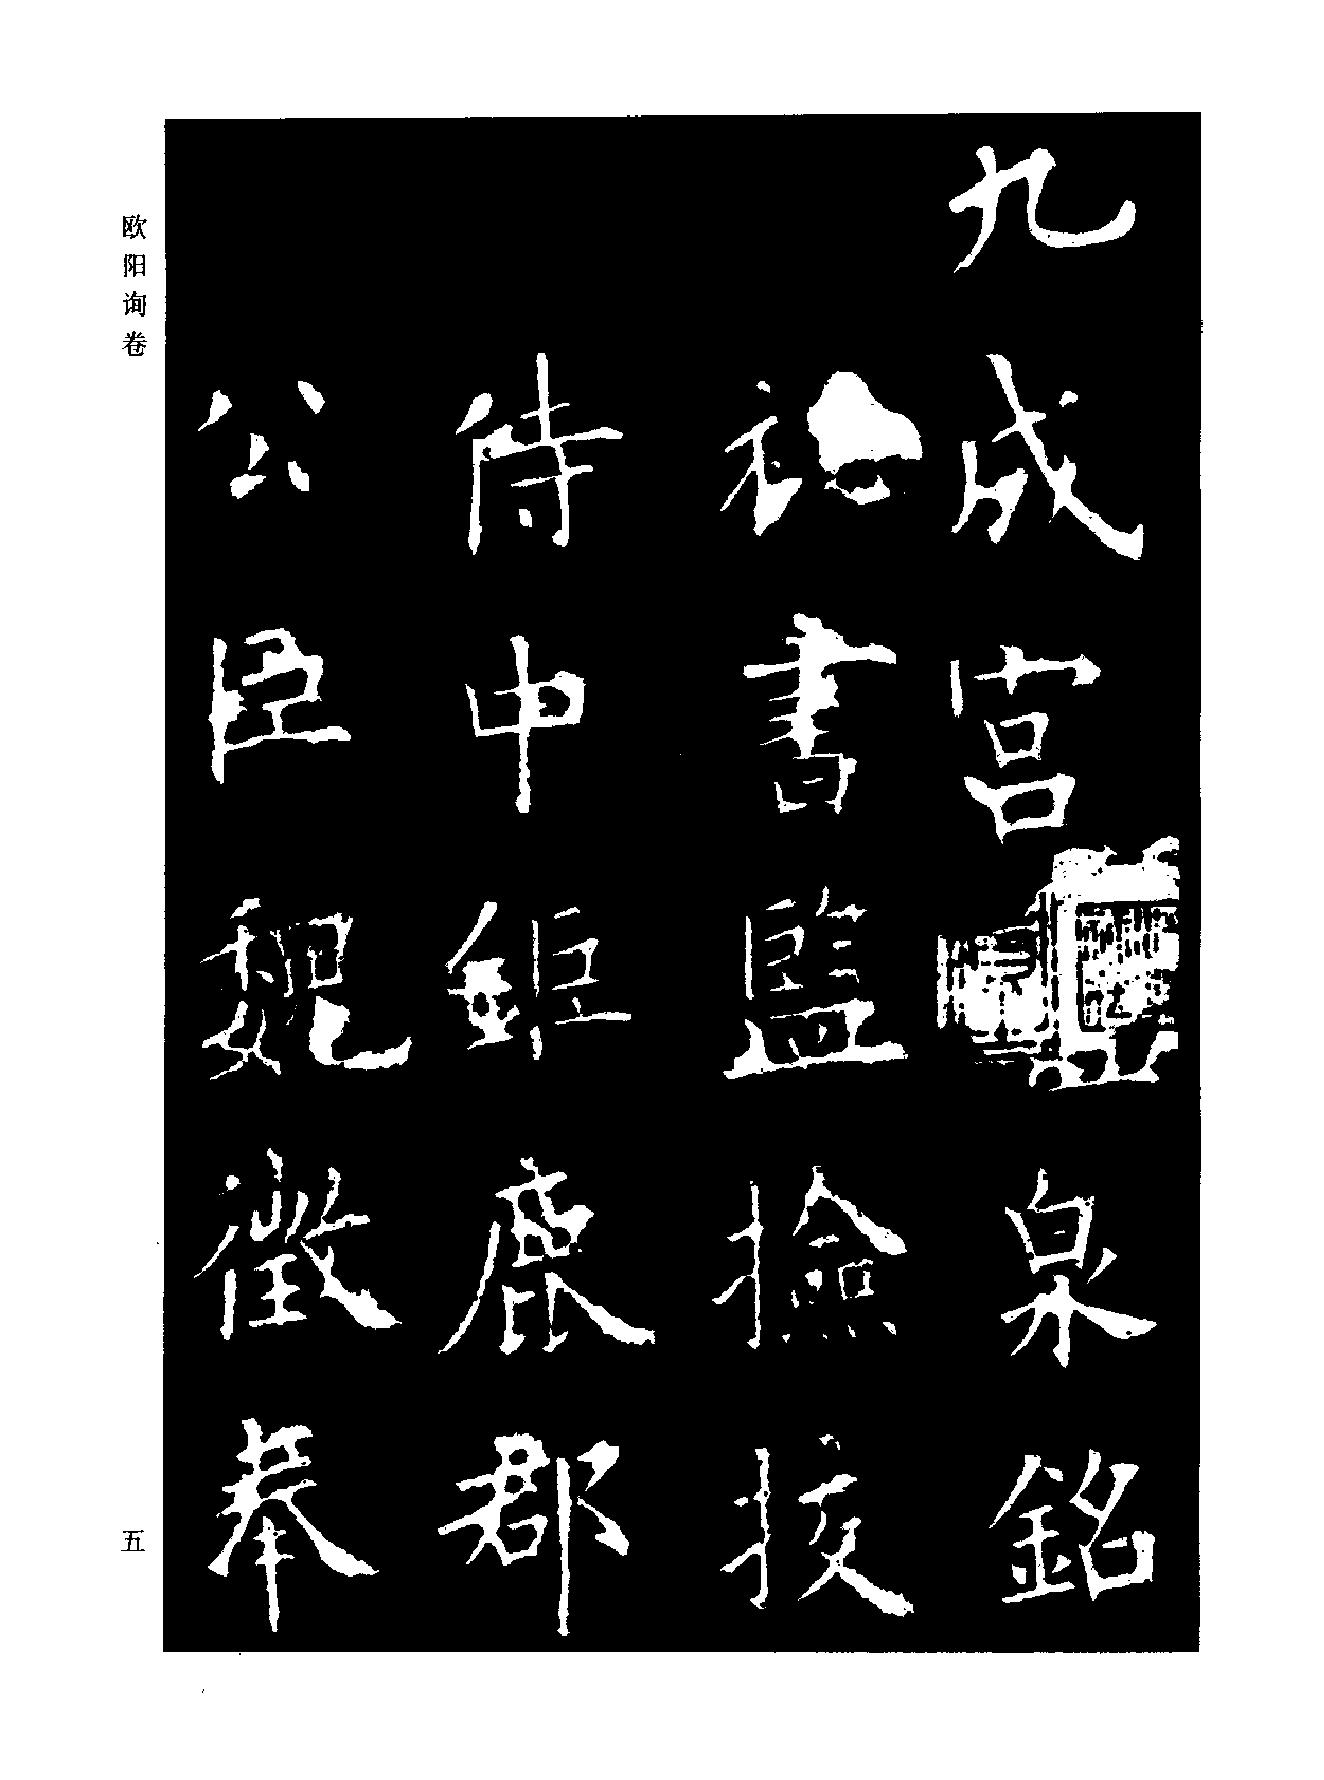 九成宮泉銘
祕書監撿挍
侍中鉅鹿郡
公臣魏徵奉
欧阳询卷
五